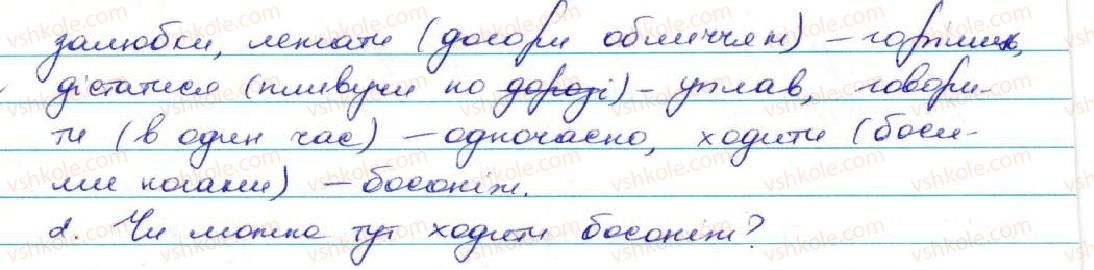 залюбки, лежати (догори обличчям) – горілиць,
дістатися (пливучи по дорозі) – уплав, говори-
ти (в один час) – одночасно, ходити (боси-
ми ногами) – босоніж.
2. Чи можна тут ходити босоніж?